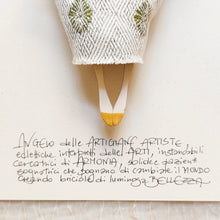 ANGELO delle ARTIGIANE ARTISTE
eclettiche interpreti delle ARTI, instancabili
cercatrici di ARMONIA, solide e pazienti
sognatrici che sognano di cambiare il MONDO
creando briciole di luminosa BELLEZZA